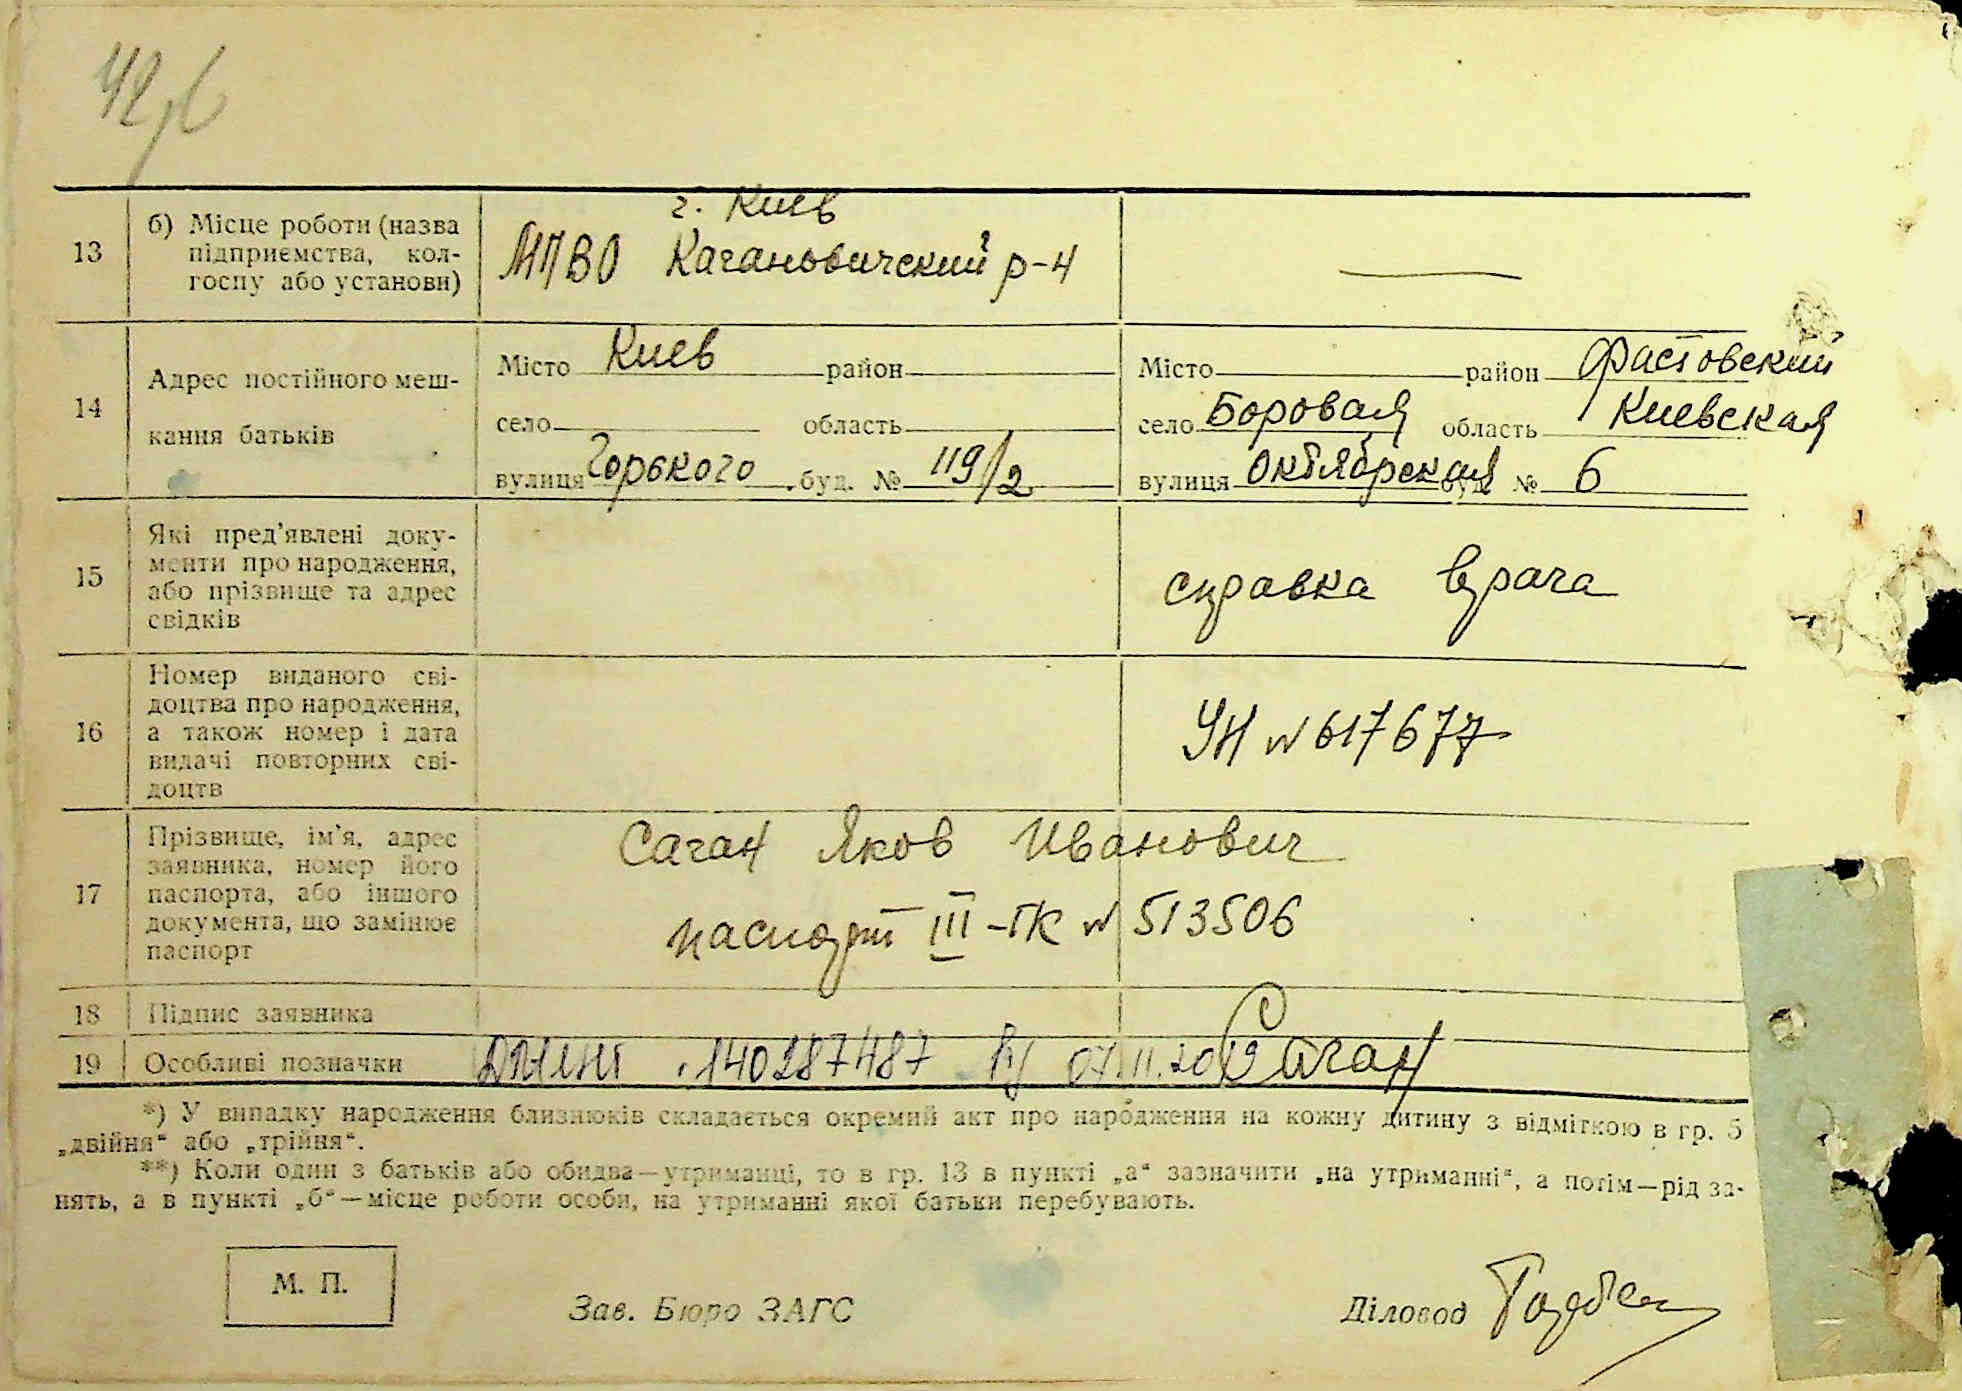 42, б
г. Киев
13 б) Місце роботи (назва підприємства, колгоспу або установи) МПВО Кагановичский р-н —
14 Адрес постійного мешкання батьків
Місто Киев район
село область
вулиця Горького буд. № 119/2
Місто район Фастовский
село Боровая область Киевская
вулиця Октябрская буд. № 6
15 Які пред'явлені документи про народження, або прізвище та адрес свідків справка врача
16 Номер виданого свідоцтва про народження, а також номер і дата видачі повторних свідоцтв УН № 617677
17 Прізвище, ім'я, адрес заявника, номер його паспорта, або іншого документа, що замінює паспорт
Саган Яков Иванович
паспорт III-ГК № 513506
18 Підпис заявника Саган
19 Особливі позначки 140287487 07.11.2019
*) У випадку народження близнюків складається окремий акт про народження на кожну дитину з відміткою в гр. 5
„двійня" або „трійня".
**) Коли один з батьків або обидва—утриманці, то в гр. 13 в пункті „а" зазначити „на утриманні", а потім—рід за-
нять, а в пункті „б"—місце роботи особи, на утриманні якої батьки перебувають.
М. П.
Зав. Бюро ЗАГС
Діловод